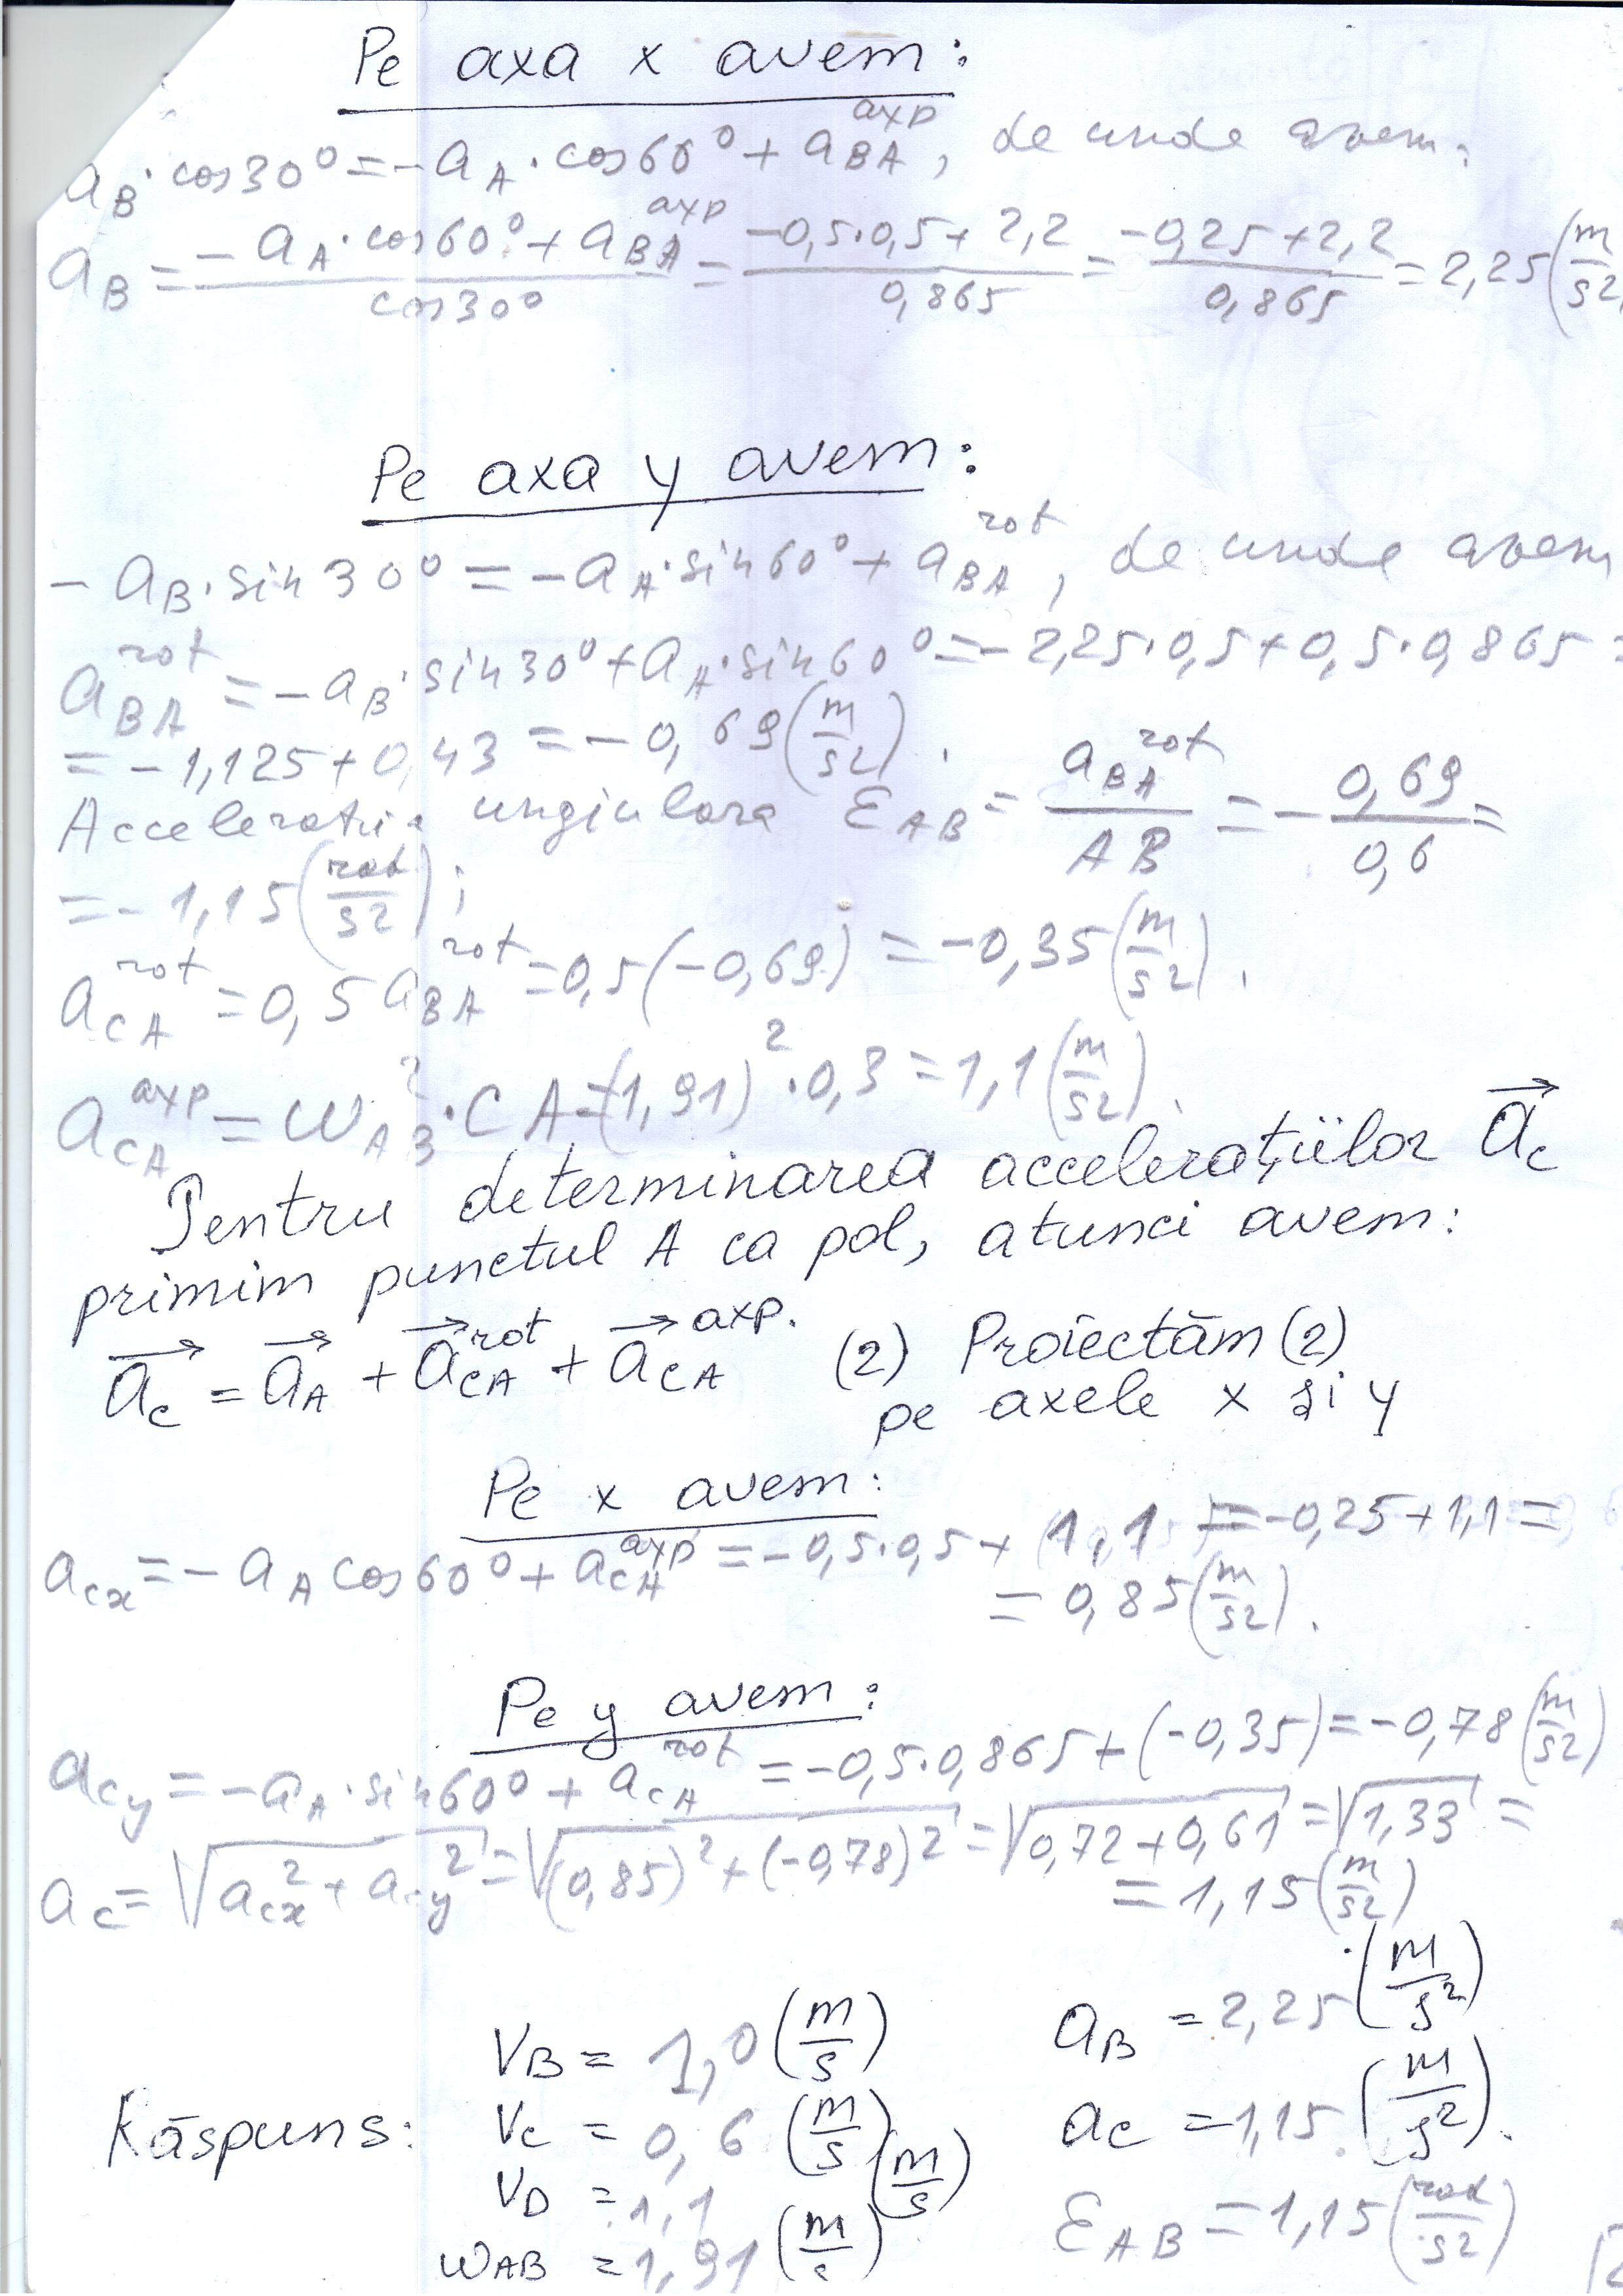 Pe axa x avem:
a_B·cos30° = -a_A·cos60° + a_BA^axp, de unde avem:
a_B = (-a_A·cos60° + a_BA^axp)/cos30° = (-0,5·0,5+2,2)/0,865 = (-0,25+2,2)/0,865 = 2,25 (m/s2
Pe axa y avem:
-a_B·sin30° = -a_A·sin60° + a_BA^rot, de unde avem
a_BA^rot = -a_B·sin30° + a_A·sin60° = -2,25·0,5+0,5·0,865 =
= -1,125+0,43 = -0,69 (m/s2).
Acceleratia ungiulara ε_AB = a_BA^rot/AB = -0,69/0,6 =
= -1,15 (rad/s2);
a_CA^rot = 0,5 a_BA^rot = 0,5(-0,69) = -0,35 (m/s2).
a_CA^axp = ω_AB^2·CA = (1,91)^2·0,3 = 1,1 (m/s2).
Pentru determinarea accelerațiilor a⃗_c
primim punctul A ca pol, atunci avem:
a⃗_c = a⃗_A + a⃗_CA^rot + a⃗_CA^axp. (2) Proiectăm (2)
pe axele x și y
Pe x avem:
a_cx = -a_A cos60° + a_CA^axp = -0,5·0,5+ 1,1 = -0,25+1,1 =
= 0,85 (m/s2).
Pe y avem:
a_cy = -a_A·sin60° + a_CA^rot = -0,5·0,865+(-0,35) = -0,78 (m/s2)
a_c = √(a_cx^2 + a_cy^2) = √((0,85)^2+(-0,78)^2) = √(0,72+0,61) = √(1,33) =
= 1,15 (m/s2)
Răspuns:
V_B = 1,0 (m/s)
V_c = 0,6 (m/s)
V_D = 1,1 (m/s)
ω_AB = 1,91 (m/s)
a_B = 2,25 (m/s^2)
a_c = 1,15 (m/s^2).
ε_AB = 1,15 (rad/s2)